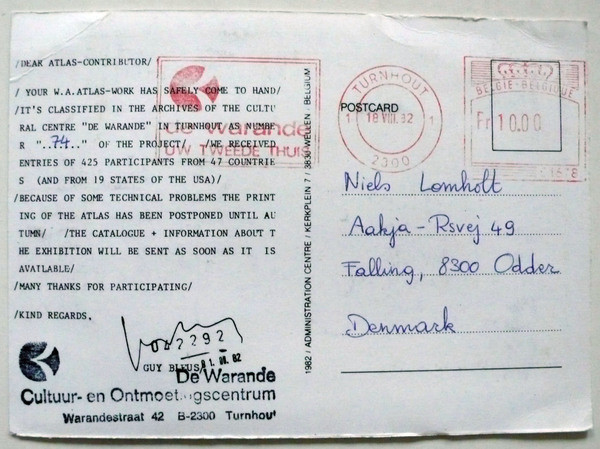 /DEAR ATLAS-CONTRIBUTOR/
/ YOUR W.A.ATLAS-WORK HAS SAFELY COME TO HAND/
/IT'S CLASSIFIED IN THE ARCHIVES OF THE CULTU
RAL CENTRE "DE WARANDE" IN TURNHOUT AS NUMBE
R "..74.." OF THE PROJECT/ /WE RECEIVED
ENTRIES OF 425 PARTICIPANTS FROM 47 COUNTRIE
S (AND FROM 19 STATES OF THE USA)/
/BECAUSE OF SOME TECHNICAL PROBLEMS THE PRINT
ING OF THE ATLAS HAS BEEN POSTPONED UNTIL AU
TUMN/ /THE CATALOGUE + INFORMATION ABOUT T
HE EXHIBITION WILL BE SENT AS SOON AS IT IS
AVAILABLE/
/MANY THANKS FOR PARTICIPATING/
/KIND REGARDS.
2292
GUY BLEUS
De Warande
Cultuur- en Ontmoetingscentrum
Warandestraat 42 B-2300 Turnhout
De Warande
UW TWEEDE THUIS
1982 / ADMINISTRATION CENTRE / KERKPLEIN 7 / 3830 WELLEN BELGIUM
TURNHOUT
1 18 VIII.82 1
2300
POSTCARD
BELGIE-BELGIQUE
Fr 10.00
Niels Lomholt
Aakja-Rsvej 49
Falling, 8300 Odder
Denmark